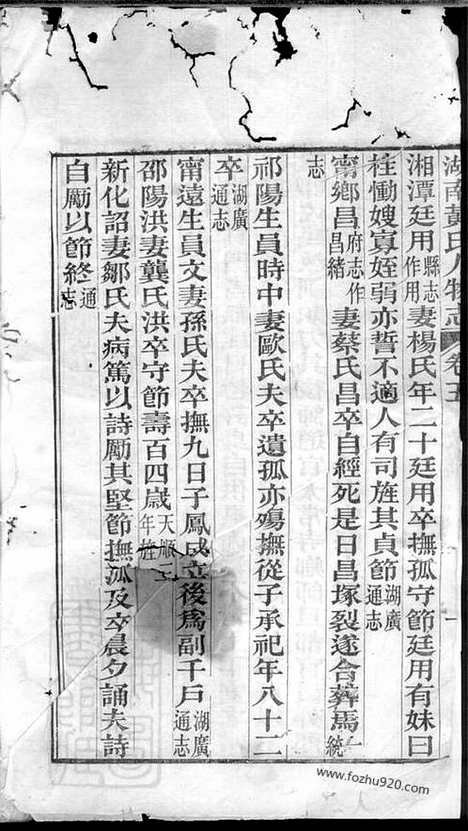 湖南黃氏人物志 卷五
湘潭廷用縣志作用妻楊氏年二十廷用卒撫孤守節廷用有妹曰
柱慟嫂寡姪弱亦誓不適人有司旌其貞節湖廣通志
甯鄉昌府志作昌緒妻蔡氏昌卒自經死是日昌塚裂遂合葬焉一統
志
祁陽生員時中妻歐氏夫卒遺孤亦殤撫從子承祀年八十二
卒湖廣通志
甯遠生員文妻孫氏夫卒撫九日子鳳成立後爲副千戶湖廣通志
邵陽洪妻龔氏洪卒守節壽百四歲天順二年旌
新化詔妻鄒氏夫病篤以詩勵其堅節撫孤及卒晨夕誦夫詩
自勵以節終通志
www.fozhu920.com